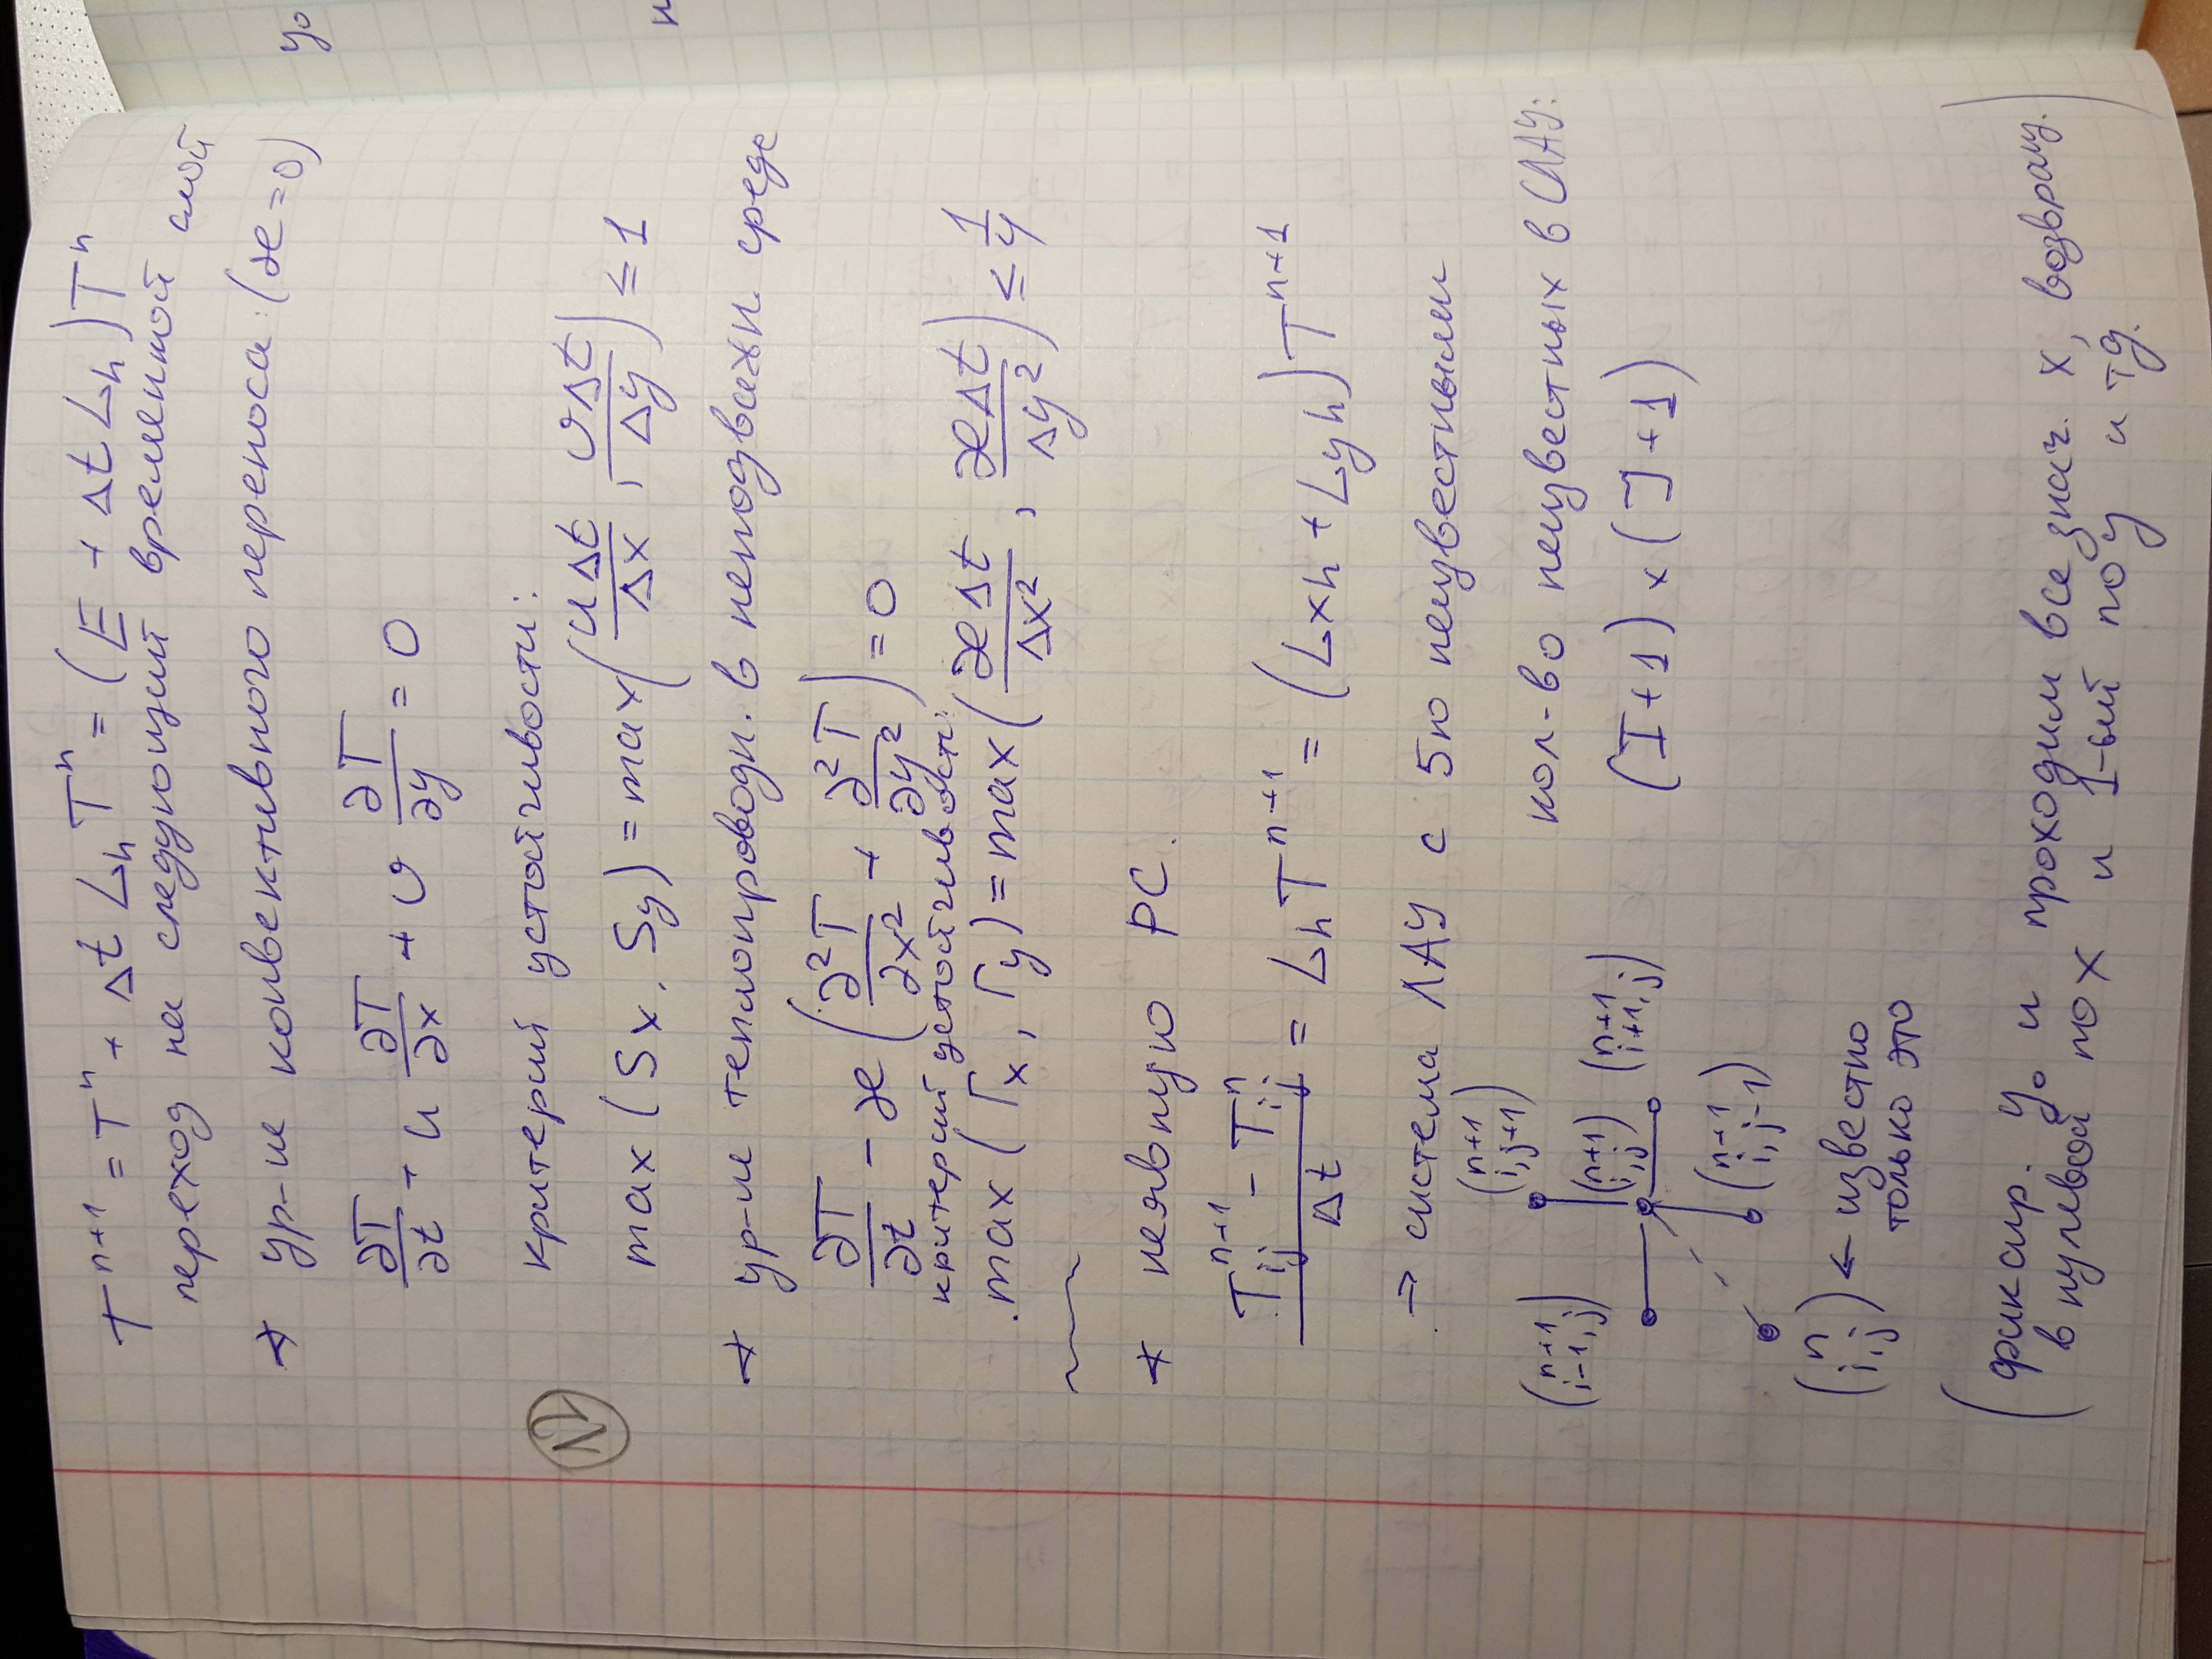 T^{n+1} = T^n + Δt L_h T^n = (E + Δt L_h) T^n
переход на следующий временной слой
∀ ур-ие конвективного переноса: (æ=0)
∂T/∂t + u ∂T/∂x + v ∂T/∂y = 0
критерий устойчивости:
12
max (S_x, S_y) = max(uΔt/Δx, vΔt/Δy) ≤ 1
∀ ур-ие теплопроводн. в неподвижн. среде
∂T/∂t - æ(∂²T/∂x² + ∂²T/∂y²) = 0
критерий устойчивости:
max (Γ_x, Γ_y) = max(æΔt/Δx², æΔt/Δy²) ≤ 1/4
∀ неявную РС.
(T_{ij}^{n+1} - T_{ij}^n)/Δt = L_h T^{n+1} = (L_{xh} + L_{yh}) T^{n+1}
⇒ система ЛАУ с 5ю неизвестными
(n+1 i, j+1)
(n+1 i-1, j)
кол-во неизвестных в СЛАУ:
(n+1 i, j)
(n+1 i+1, j)
(I+1) × (J+1)
(n+1 i, j-1)
(n i, j) ← известно
только это
(фиксир. y₀ и проходим все знач. x, возвращ.
в нулевой по x и 1-ый по y и тд.)
y₀